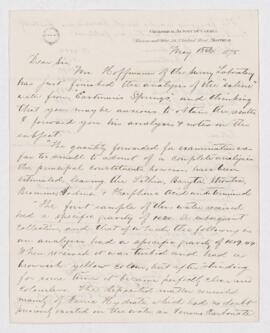 GEOLOGICAL SURVEY OF CANADA
May 18th 1875
Dear Sir
Mr. Hoffmann of the Survey Laboratory
has just finished the analysis of the "saline"
water from Springs, and thinking
that you may be anxious to obtain the results
I forward you his analysis & notes on the
subject.
"The quantity forwarded for examination was
far too small to admit of a complete analysis
the principal constituents however have been
estimated leaving the Lithia, Baryta, Strontia,
Bromine, Iodine & Acid undetermined
The first sample of this water received
had a specific gravity of a subsequent
collection, and that of which the following is
an analysis had a specific gravity of
When received it was turbid and had a
brownish yellow colour, but after standing
for some time it became perfectly clear and
colourless. The deposited matter consisted
mainly of Ferric Hydrate which had no doubt
previously existed in the water as Ferrous Carbonate